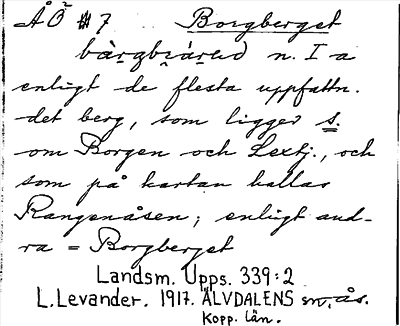 ÅÖ #7 Borgberget
n. I a
enligt de flesta uppfattn.
det berg, som ligger s.
om Borgen och Lextj., och
som på kartan kallas
Rangenåsen; enligt and-
ra = Borgberget
Landsm. Upps. 339:2
L. Levander. 1917. ÄLVDALENS sn. ås.
Kopp. län.